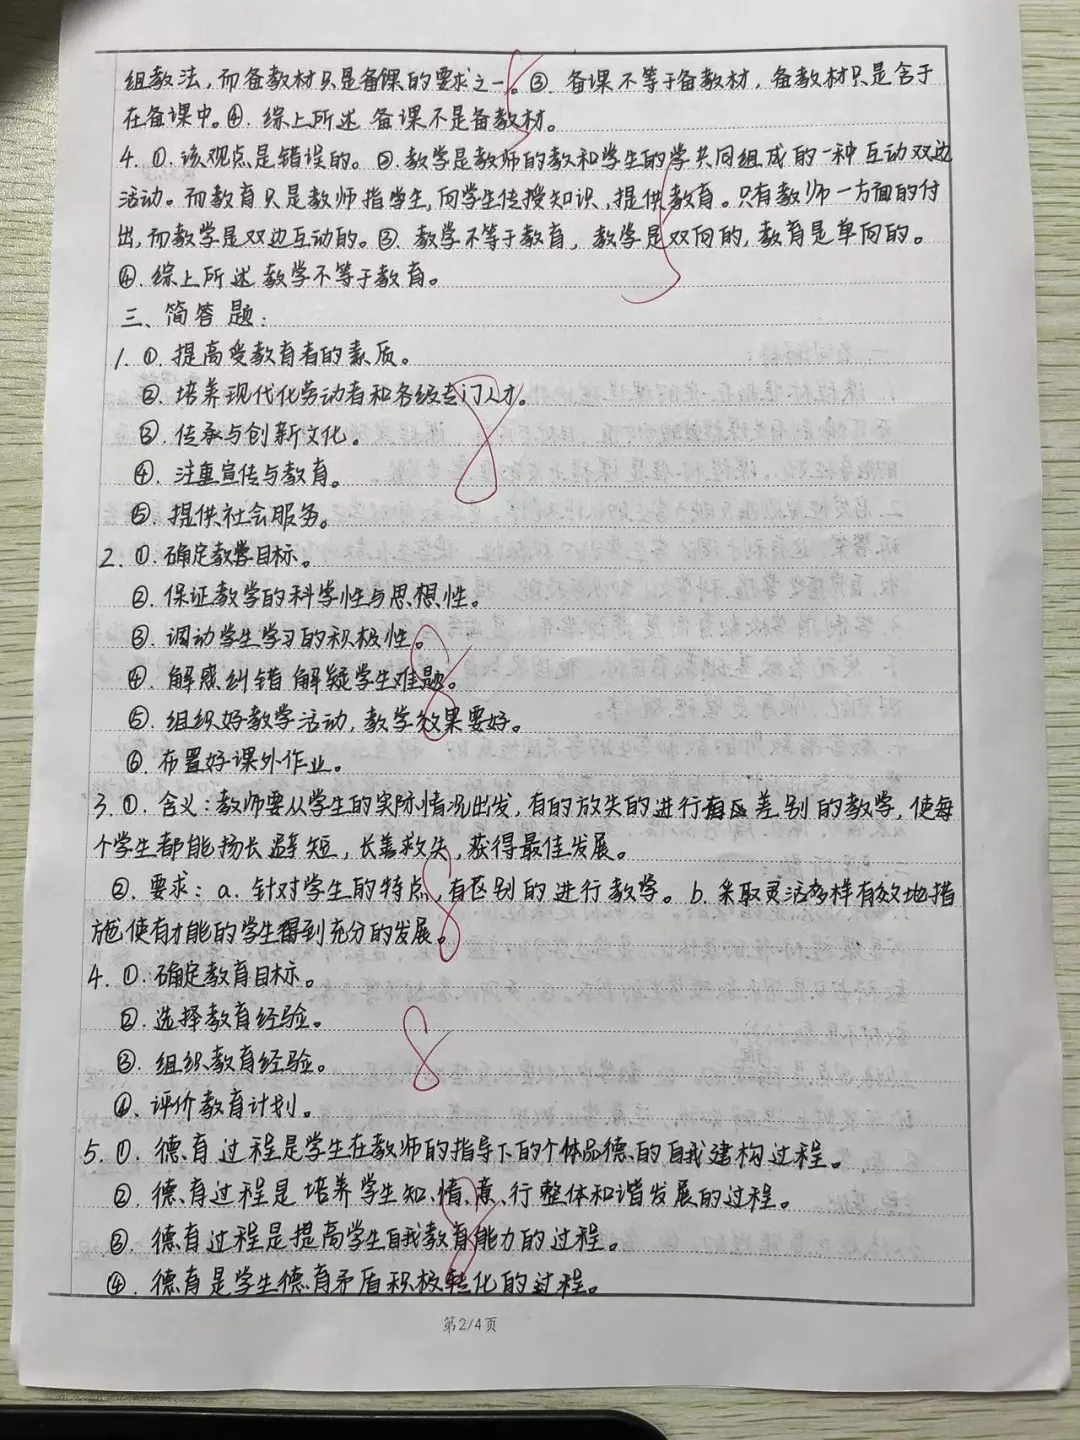 组教法，而备教材只是备课的要求之一。③. 备课不等于备教材，备教材只是含于
在备课中。④. 综上所述 备课不是备教材。
4. ①. 该观点是错误的。②. 教学是教师的教和学生的学共同组成的一种互动双边
活动。而教育只是教师指学生，向学生传授知识，提供教育。只有教师一方面的付
出，而教学是双边互动的。③. 教学不等于教育，教学是双向的，教育是单向的。
④. 综上所述 教学不等于教育。
三、简答题：
1. ①. 提高受教育者的素质。
②. 培养现代化劳动者和各级专门人才。
③. 传承与创新文化。
④. 注重宣传与教育。
⑤. 提供社会服务。
2. ①. 确定教学目标。
②. 保证教学的科学性与思想性。
③. 调动学生学习的积极性。
④. 解惑纠错 解疑学生难题。
⑤. 组织好教学活动，教学效果要好。
⑥. 布置好课外作业。
3. ①. 含义：教师要从学生的实际情况出发，有的放失的进行有区差别的教学，使每
个学生都能扬长避短，长善救失，获得最佳发展。
②. 要求：a. 针对学生的特点，有区别的进行教学。b. 采取灵活多样有效地措
施使有才能的学生得到充分的发展。
4. ①. 确定教育目标。
②. 选择教育经验。
③. 组织教育经验。
④. 评价教育计划。
5. ①. 德育过程是学生在教师的指导下的个体品德的自我建构过程。
②. 德育过程是培养学生知、情、意、行整体和谐发展的过程。
③. 德育过程是提高学生自我教育能力的过程。
④. 德育是学生德育矛盾积极转化的过程。
5
5
8
8
8
8
8
第2/4页